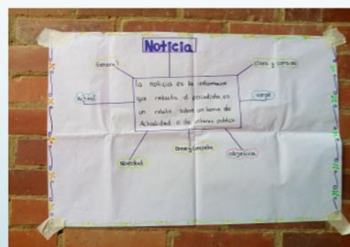 Noticia
General
Clara y concisa
La noticia es la informacion
que redacta el periodista, es
un relato sobre un tema de
Actualidad o de interes publico
Actual
veraz
Novedad
Breve y Completa
objetiva